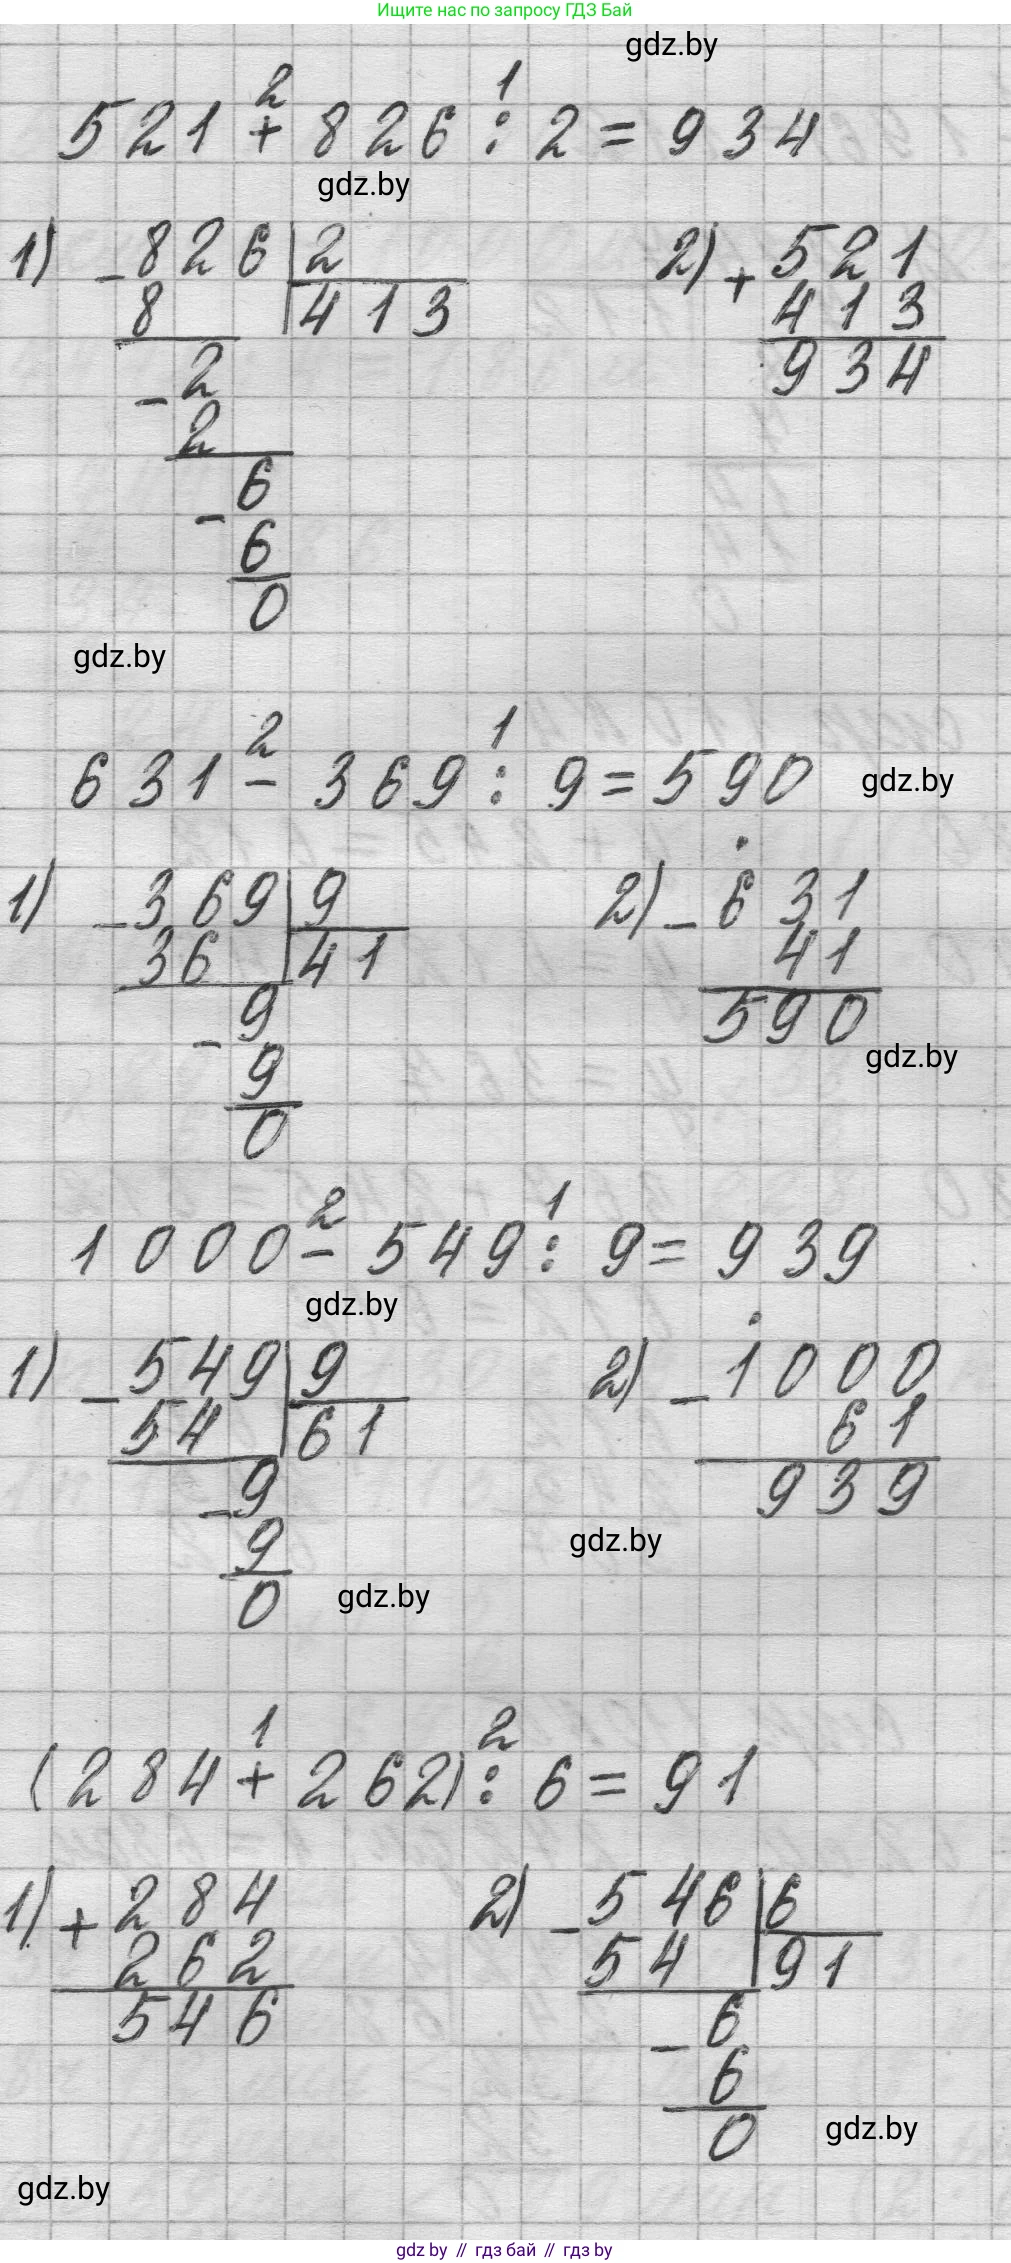 Ищите нас по запросу ГДЗ Бай
gdz.by
2 1
521 + 826 : 2 = 934
gdz.by
1) - 826 | 2
8 413
- 2
2
- 6
6
0
2) + 521
413
934
gdz.by
2 1
631 - 369 : 9 = 590
gdz.by
1) - 369 | 9
36 41
- 9
9
0
2) - 631
41
590
gdz.by
2 1
1000 - 549 : 9 = 939
gdz.by
1) - 549 | 9
54 61
- 9
9
0
2) - 1000
61
939
gdz.by
gdz.by
1 2
(284 + 262) : 6 = 91
1) + 284
262
546
2) - 546 | 6
54 91
- 6
6
0
gdz.by
gdz.by
gdz by // гдз бай // gdz by